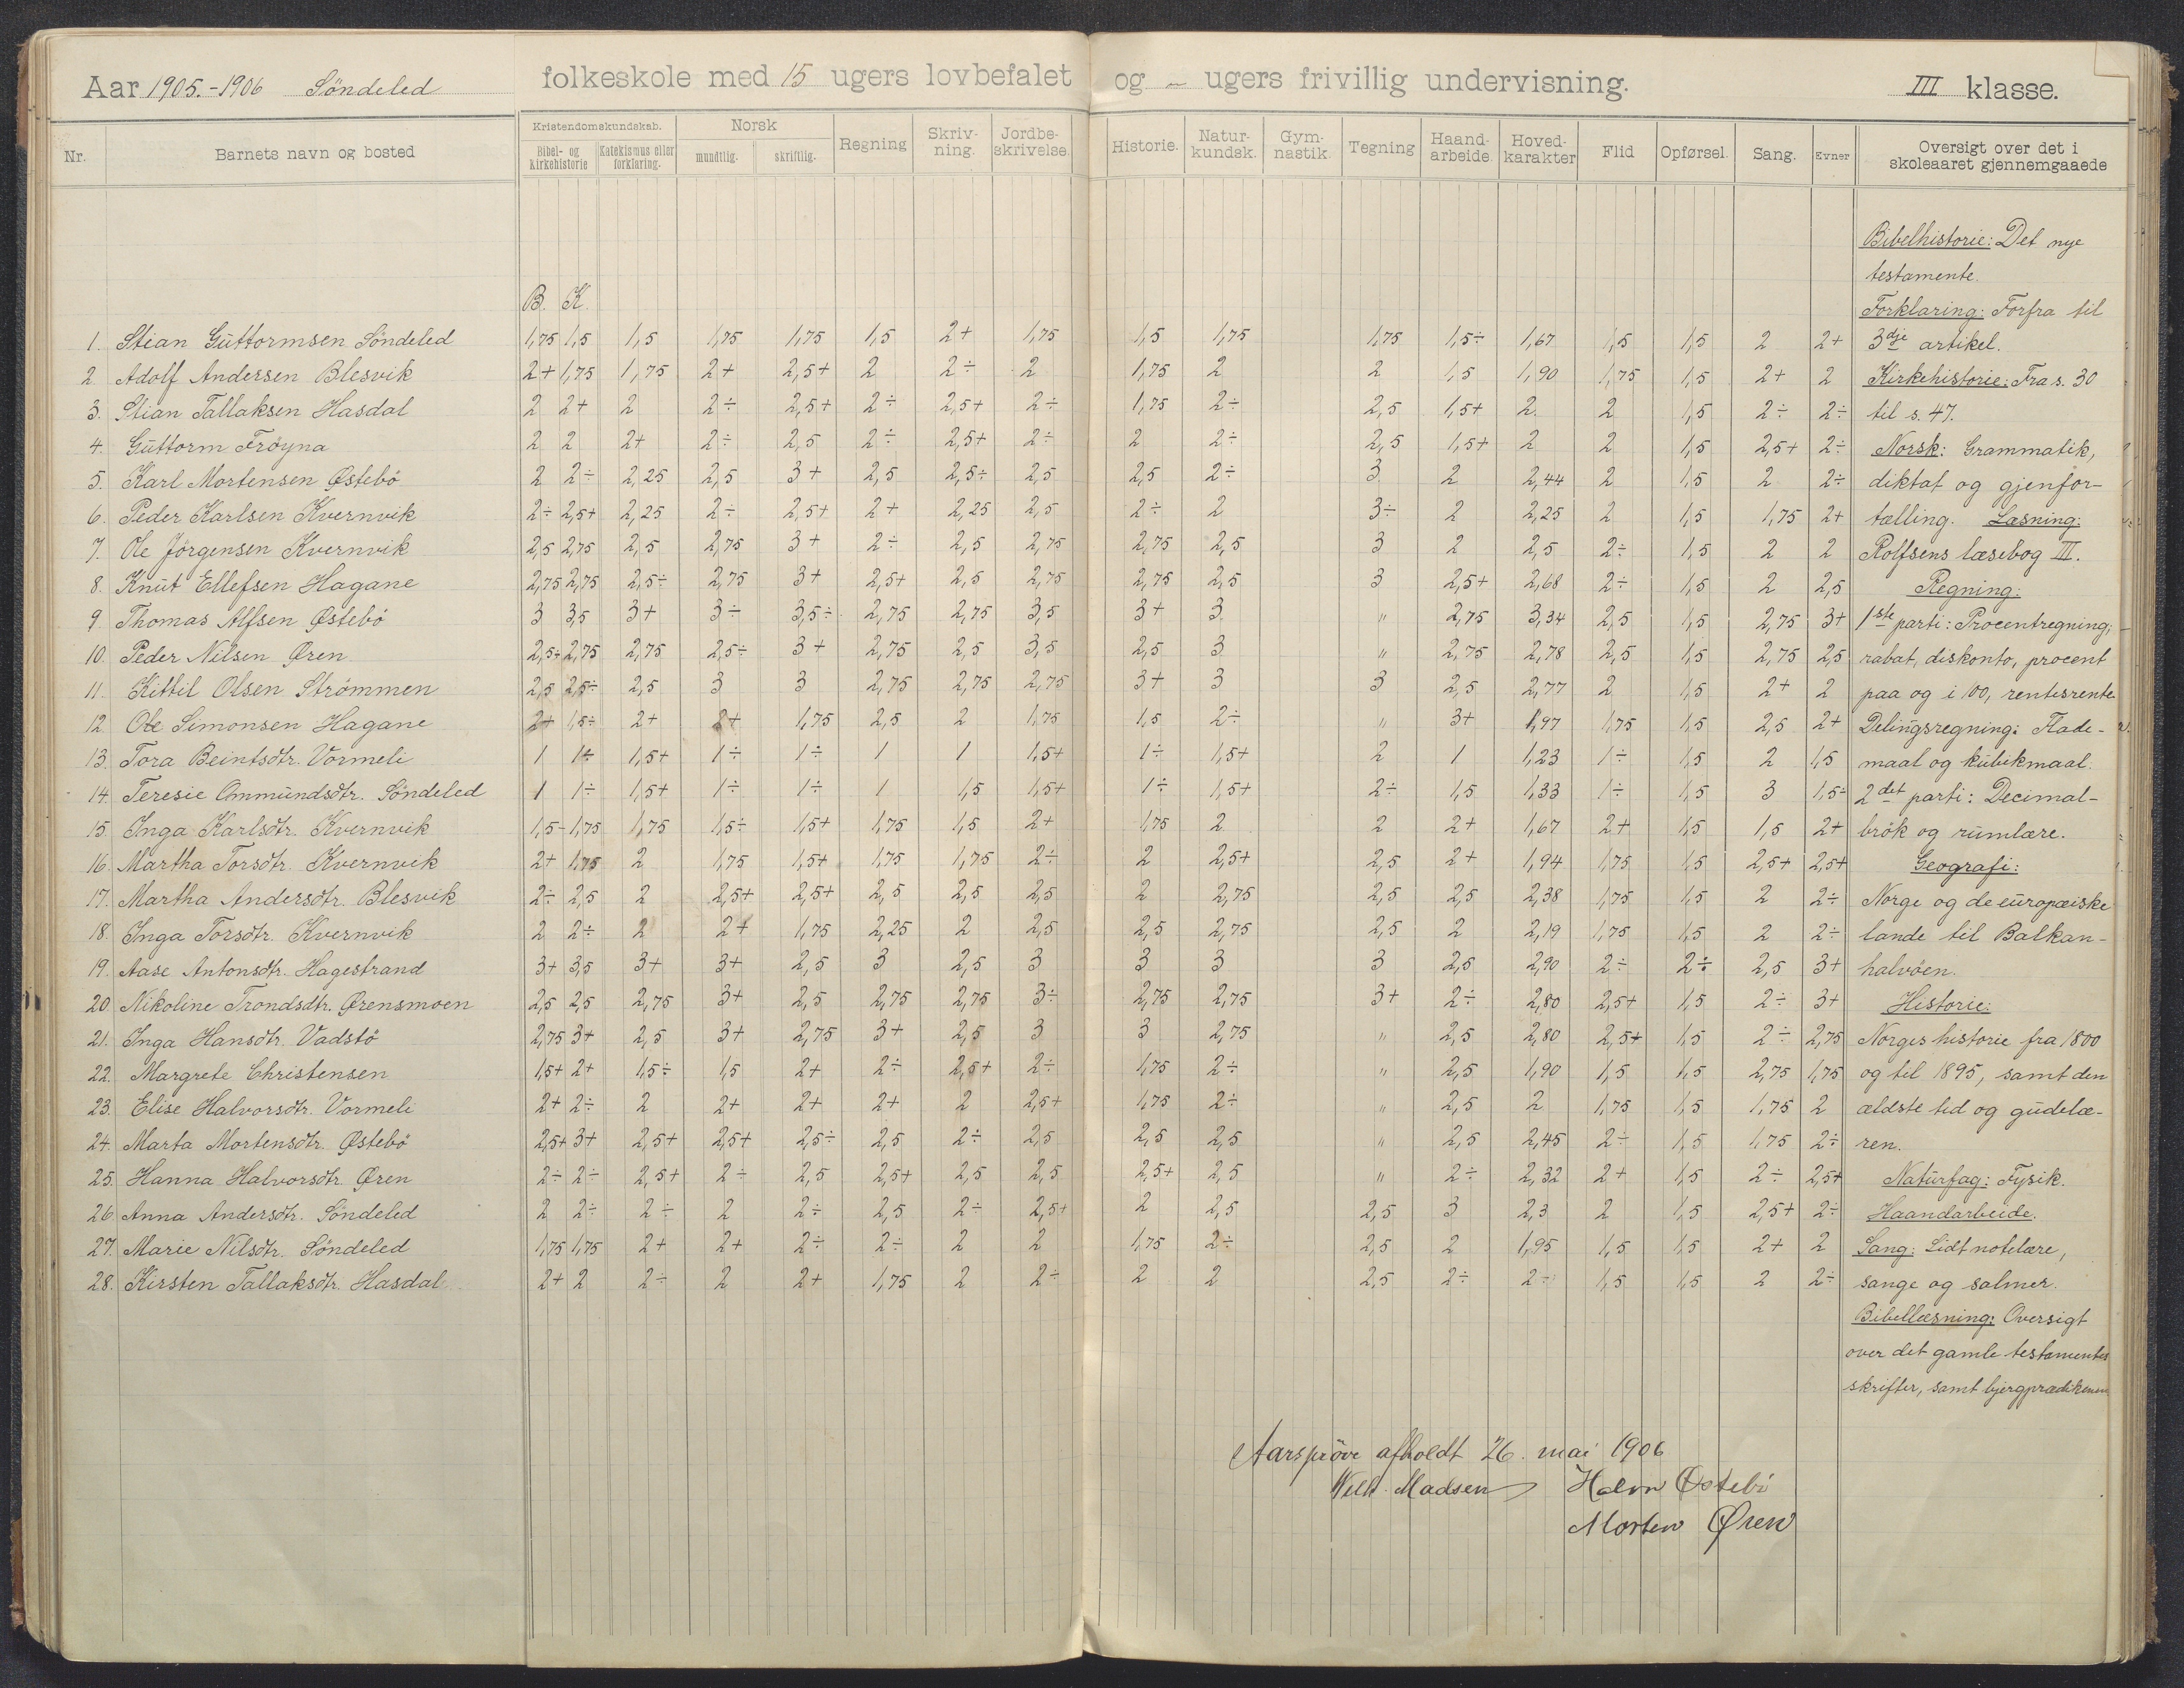 Aar 1905.-1906 Söndeled folkeskole med 15 ugers lovbefalet og – ugers frivillig undervisning. III klasse.
Nr. Barnets navn og bosted Kristendomskundskab. Bibel- og kirkehistorie Katekismus eller forklaring. Norsk mundtlig. skriftlig. Regning Skriv-ning. Jordbe-skrivelse. Historie. Natur-kundsk. Gym-nastik. Tegning Haand-arbeide. Hoved-karakter Flid Opførsel. Sang. Evner Oversigt over det i skoleaaret gjennemgaaede
Bibelhistorie: Det nye
testamente.
B. K. Forklaring: Forfra til
1. Stian Guttormsen Söndeled 1,75 1,5 1,5 1,75 1,75 1,5 2+ 1,75 1,5 1,75 1,75 1,5÷ 1,67 1,5 1,5 2 2+ 3dje artikel.
2. Adolf Andersen Blesvik 2+ 1,75 1,75 2+ 2,5+ 2 2÷ 2 1,75 2 2 1,5 1,90 1,75 1,5 2+ 2 Kirkehistorie: Fra s. 30
3. Stian Tallaksen Hasdal 2 2+ 2 2÷ 2,5+ 2÷ 2,5+ 2÷ 1,75 2÷ 2,5 1,5+ 2 2 1,5 2÷ 2÷ til s. 47.
4. Guttorm Fröyna 2 2 2+ 2÷ 2,5 2÷ 2,5+ 2÷ 2 2÷ 2,5 1,5+ 2 2 1,5 2,5+ 2÷ Norsk: Grammatik,
5. Karl Mortensen Østebö 2 2÷ 2,25 2,5 3+ 2,5 2,5÷ 2,5 2,5 2÷ 3 2 2,44 2 1,5 2 2÷ diktat og gjenfor-
6. Peder Karlsen Kvernvik 2÷ 2,5+ 2,25 2÷ 2,5+ 2+ 2,25 2,5 2÷ 2 3÷ 2 2,25 2 1,5 1,75 2+ tælling. Læsning:
7. Ole Jörgensen Kvernvik 2,5 2,75 2,5 2,75 3+ 2÷ 2,5 2,75 2,75 2,5 3 2 2,5 2÷ 1,5 2 2 Rolfsens læsebog III.
8. Knut Ellefsen Hagane 2,75 2,75 2,5÷ 2,75 3+ 2,5+ 2,5 2,75 2,75 2,5 3 2,5+ 2,68 2÷ 1,5 2 2,5 Regning:
9. Thomas Alfsen Østebö 3 3,5 3+ 3÷ 3,5÷ 2,75 2,75 3,5 3+ 3 " 2,75 3,34 2,5 1,5 2,75 3+ 1ste parti: Procentregning;
10. Peder Nilsen Øren 2,5+ 2,75 2,75 2,5÷ 3+ 2,75 2,5 3,5 2,5 3 " 2,75 2,78 2,5 1,5 2,75 2,5 rabat, diskonto, procent
11. Kittil Olsen Strömmen 2,5 2,5÷ 2,5 3 3 2,75 2,75 2,75 3+ 3 3 2,5 2,77 2 1,5 2+ 2 paa og i 100, rentesrente
12. Ole Simonsen Hagane 2+ 1,5÷ 2+ 2+ 1,75 2,5 2 1,75 1,5 2÷ " 3+ 1,97 1,75 1,5 2,5 2+ Delingsregning: Flade-
13. Tora Beintsdtr. Vormeli 1 1÷ 1,5+ 1÷ 1÷ 1 1 1,5+ 1÷ 1,5+ 2 1 1,23 1÷ 1,5 2 1,5 maal og kubikmaal.
14. Teresie Ommundsdtr. Söndeled 1 1÷ 1,5+ 1÷ 1÷ 1 1,5 1,5+ 1÷ 1,5+ 2÷ 1,5 1,33 1÷ 1,5 3 1,5÷ 2det parti: Decimal-
15. Inga Karlsdtr. Kvernvik 1,5- 1,75 1,75 1,5÷ 1,5+ 1,75 1,5 2+ 1,75 2 2 2+ 1,67 2+ 1,5 1,5 2+ brök og rumlære.
16. Martha Torsdtr. Kvernvik 2+ 1,75 2 1,75 1,5+ 1,75 1,75 2÷ 2 2,5+ 2,5 2+ 1,94 1,75 1,5 2,5+ 2,5+ Geografi:
17. Martha Andersdtr. Blesvik 2÷ 2,5 2 2,5+ 2,5+ 2,5 2,5 2,5 2 2,75 2,5 2,5 2,38 1,75 1,5 2 2÷ Norge og de europæiske
18. Inga Torsdtr. Kvernvik 2 2÷ 2 2+ 1,75 2,25 2 2,5 2,5 2,75 2,5 2 2,19 1,75 1,5 2 2÷ lande til Balkan-
19. Aase Antonsdtr. Hagestrand 3+ 3,5 3+ 3+ 2,5 3 2,5 3 3 3 3 2,5 2,90 2÷ 2÷ 2,5 3+ halvöen.
20. Nikoline Trondsdtr. Ørensmoen 2,5 2,5 2,75 3+ 2,5 2,75 2,75 3÷ 2,75 2,75 3+ 2÷ 2,80 2,5+ 1,5 2÷ 3+ Historie:
21. Inga Hansdtr. Vadstö 2,75 3+ 2,5 3+ 2,75 3+ 2,5 3 3 2,75 " 2,5 2,80 2,5+ 1,5 2÷ 2,75 Norges historie fra 1800
22. Margrete Christensen 1,5+ 2+ 1,5÷ 1,5 2+ 2÷ 2,5+ 2÷ 1,75 2÷ " 2,5 1,90 1,5 1,5 2,75 1,75 og til 1895, samt den
23. Elise Halvorsdtr. Vormeli 2+ 2÷ 2 2+ 2+ 2+ 2 2,5+ 1,75 2÷ " 2,5 2 1,75 1,5 1,75 2 ældste tid og gudelæ-
24. Marta Mortensdtr. Østebö 2,5+ 3+ 2,5+ 2,5+ 2,5÷ 2,5 2÷ 2,5 2,5 2,5 " 2,5 2,45 2÷ 1,5 1,75 2÷ ren.
25. Hanna Halvorsdtr. Øren 2÷ 2÷ 2,5+ 2÷ 2,5 2,5+ 2,5 2,5 2,5+ 2,5 " 2÷ 2,32 2+ 1,5 2÷ 2,5+ Naturfag: Fysik.
26. Anna Andersdtr. Söndeled 2 2÷ 2÷ 2 2÷ 2,5 2÷ 2,5+ 2 2,5 2,5 3 2,3 2 1,5 2,5+ 2÷ Haandarbeide.
27. Marie Nilsdtr. Söndeled 1,75 1,75 2+ 2+ 2÷ 2÷ 2 2 1,75 2÷ 2,5 2 1,95 1,5 1,5 2+ 2 Sang: Lidt notelære,
28. Kirsten Tallaksdtr. Hasdal 2+ 2 2÷ 2 2+ 1,75 2 2÷ 2 2 2,5 2÷ 2÷ 1,5 1,5 2 2÷ sange og salmer.
Bibellæsning: Oversigt
over det gamle testamentes
skrifter, samt bjergprædikenen
Aarspröve afholdt 26. mai 1906
Wilh. Madsen Halvor Østebö
Morten Øren